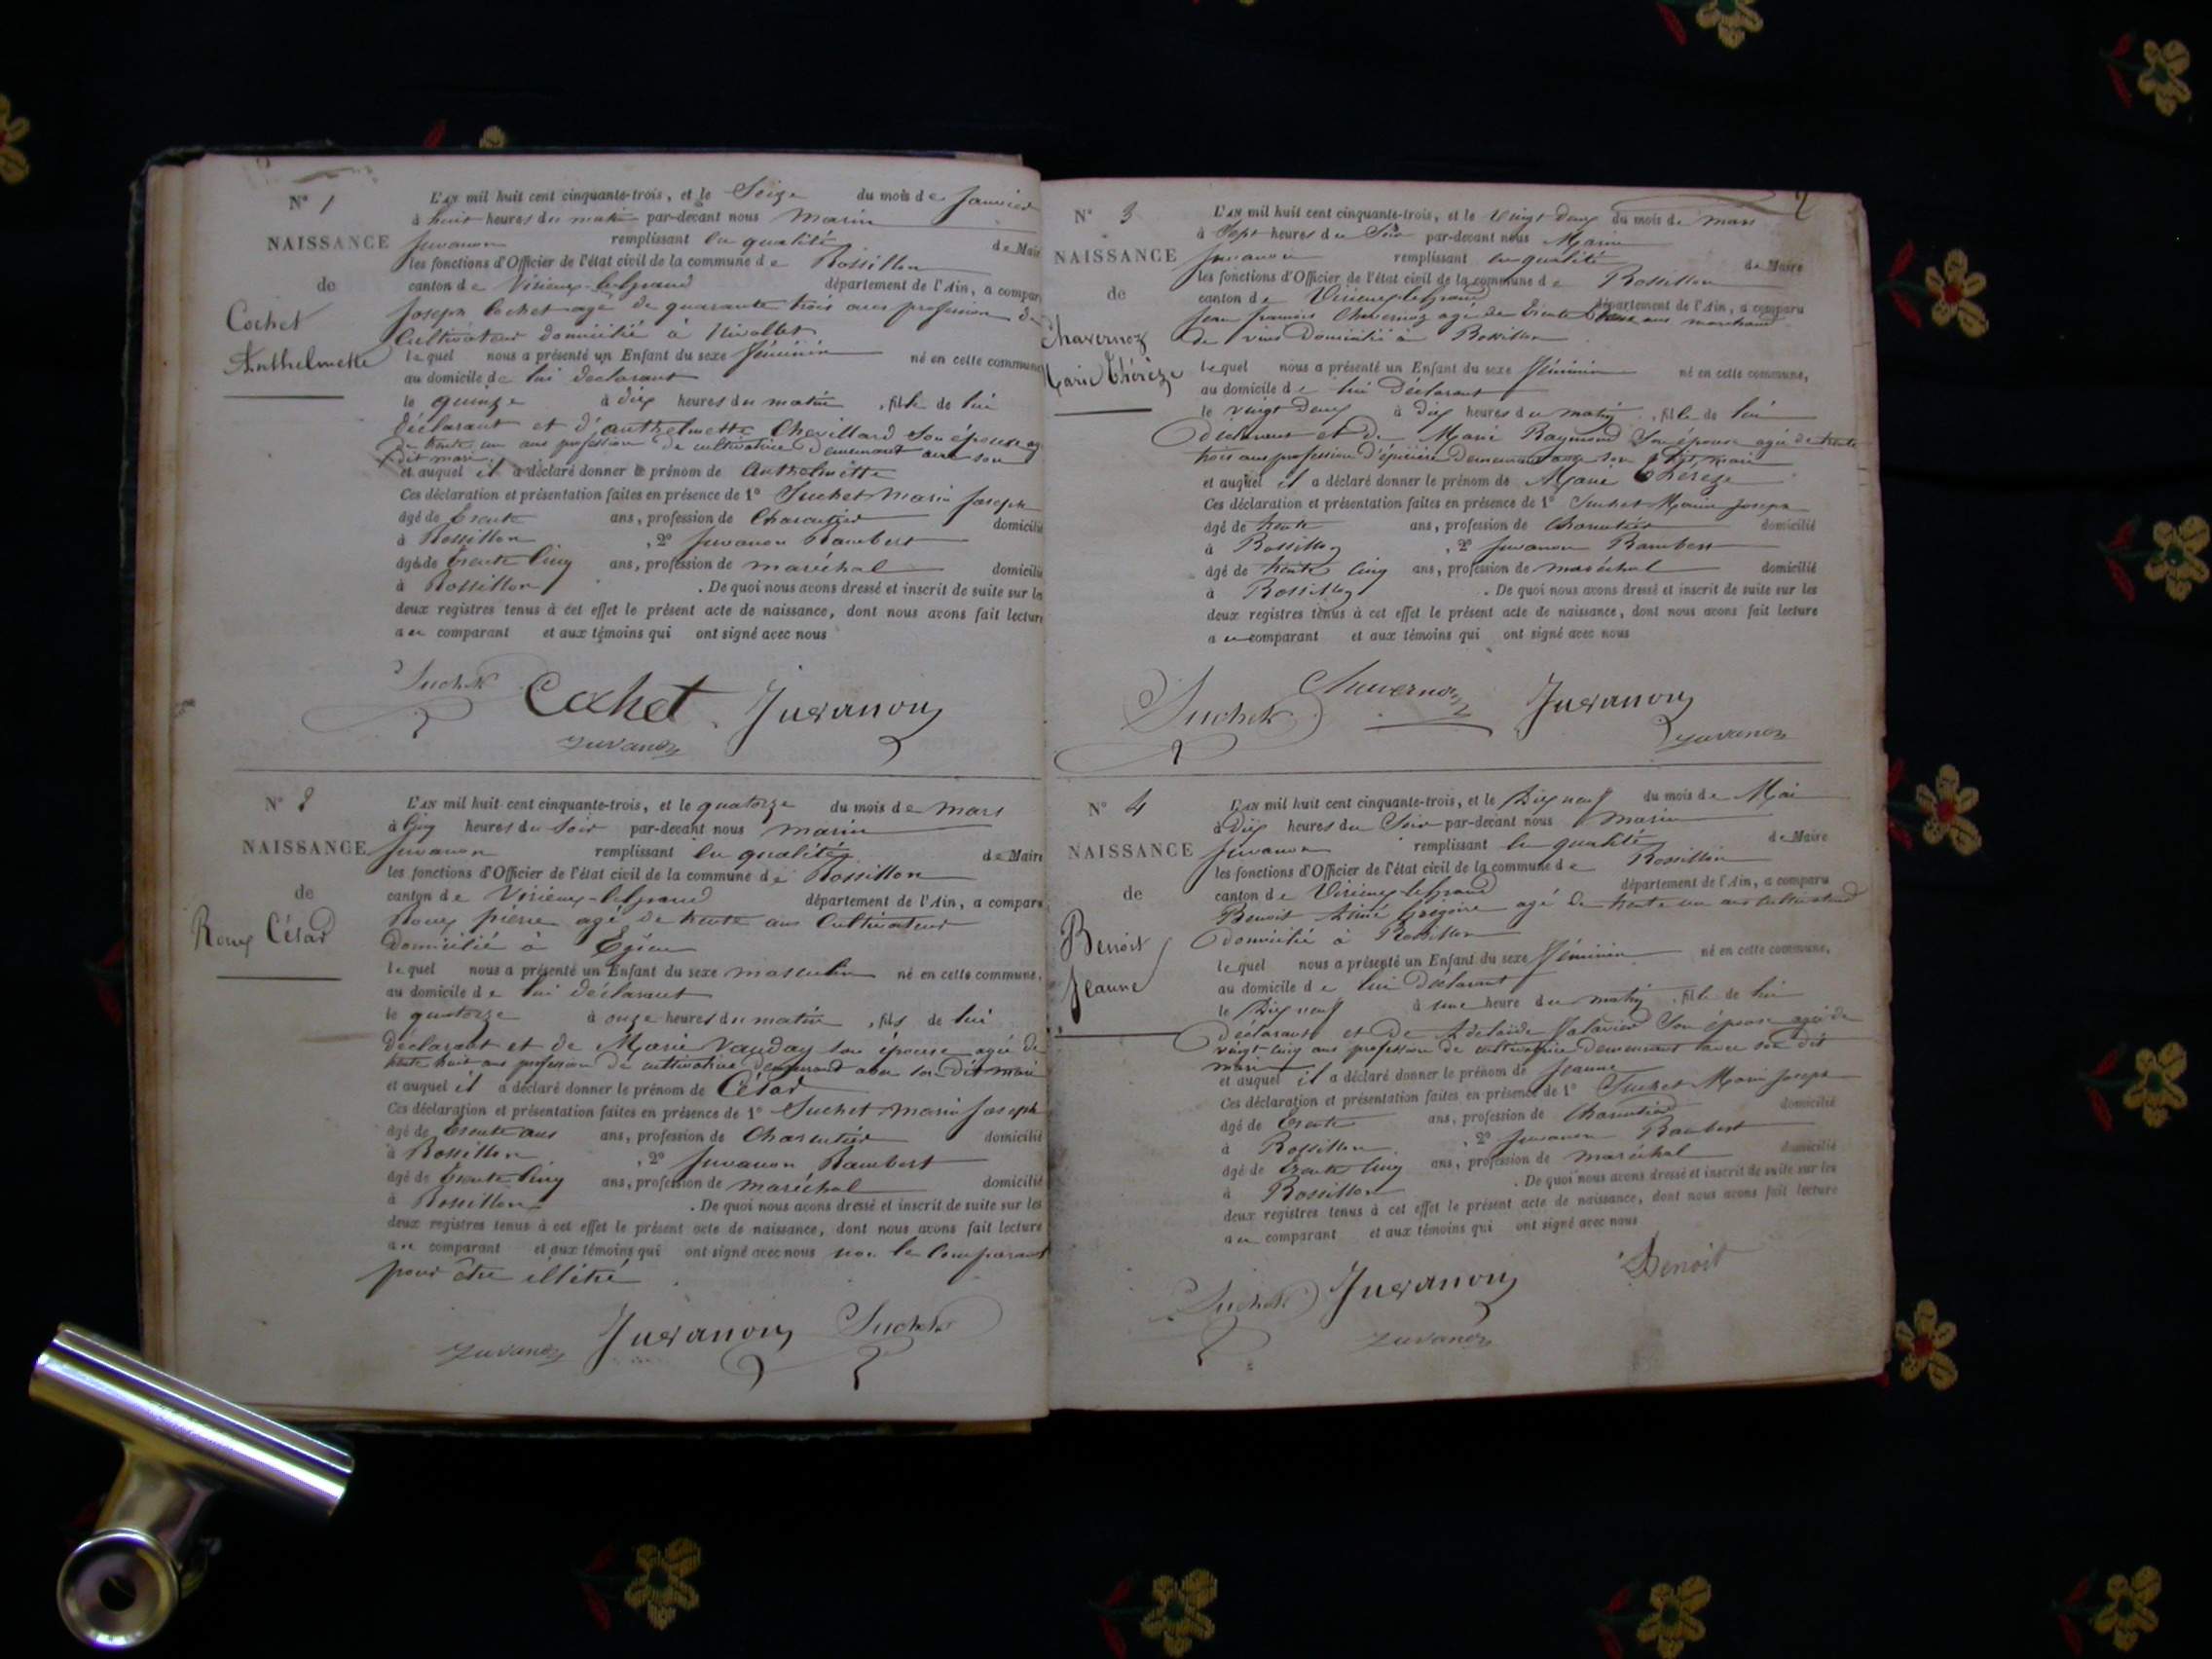 N° 1
NAISSANCE
de
Cochet
Anthelmette
L'AN mil huit cent cinquante-trois, et le Seize du mois de Janvier
à huit heures du matin par-devant nous Marin
Juvanon remplissant en qualité de Maire
les fonctions d'Officier de l'état civil de la commune de Rossillon
canton de Virieux-le-Grand département de l'Ain, a comparu
Joseph Cochet agé de quarante trois ans profession de
Cultivateur domicilié à
lequel nous a présenté un Enfant du sexe féminin né en cette commune
au domicile de lui déclarant
le quinze à dix heures du matin, fille de lui
déclarant et d'anthelmette Chevillard Son épouse agée
de trente un ans profession de cultivatrice demeurant avec son
dit mari
et auquel il a déclaré donner le prénom de Anthelmette
Ces déclaration et présentation faites en présence de 1° Suchet Marin Joseph
âgé de trente ans, profession de Charcutier domicilié
à Rossillon, 2° Juvanon Rambert
âgé de trente cinq ans, profession de maréchal domicilié
à Rossillon. De quoi nous avons dressé et inscrit de suite sur les
deux registres tenus à cet effet le présent acte de naissance, dont nous avons fait lecture
au comparant et aux témoins qui ont signé avec nous
Suchet Cochet Juvanon
Juvanon
N° 2
NAISSANCE
de
Roux César
L'AN mil huit cent cinquante-trois, et le quatorze du mois de mars
à Cinq heures du Soir par-devant nous marin
Juvanon remplissant en qualité de Maire
les fonctions d'Officier de l'état civil de la commune de Rossillon
canton de Virieux-le-Grand département de l'Ain, a comparu
Roux pierre agé de trente ans Cultivateur
domicilié à
lequel nous a présenté un Enfant du sexe masculin né en cette commune,
au domicile de lui déclarant
le quatorze à onze heures du matin, fils de lui
déclarant et de Marie Vauday son épouse agée de
trente huit ans profession de cultivatrice demeurant avec son dit mari
et auquel il a déclaré donner le prénom de César
Ces déclaration et présentation faites en présence de 1° Suchet marin Joseph
âgé de trente ans ans, profession de Charcutier domicilié
à Rossillon, 2° Juvanon Rambert
âgé de trente cinq ans, profession de maréchal domicilié
à Rossillon. De quoi nous avons dressé et inscrit de suite sur les
deux registres tenus à cet effet le présent acte de naissance, dont nous avons fait lecture
au comparant et aux témoins qui ont signé avec nous non le Comparant
pour être illétré
Juvanon Juvanon Suchet
2
N° 3
NAISSANCE
de
Chavernoz
Marie Thérèze
L'AN mil huit cent cinquante-trois, et le vingt deux du mois de mars
à Sept heures du Soir par-devant nous Marin
Juvanon remplissant en qualité de Maire
les fonctions d'Officier de l'état civil de la commune de Rossillon
canton de Virieux-le-Grand département de l'Ain, a comparu
Jean francois Chavernoz agé de trente ans marchand
de vins Domicilié à Rossillon
lequel nous a présenté un Enfant du sexe féminin né en cette commune,
au domicile de lui Déclarant
le vingt deux à dix heures du matin, fille de lui
déclarant et de Marie Raymond Son épouse agée de trente
trois ans profession d'épicière Demeurant avec son dit mari
et auquel il a déclaré donner le prénom de Marie Thérèze
Ces déclaration et présentation faites en présence de 1° Suchet Marin Joseph
âgé de trente ans, profession de Charcutier domicilié
à Rossillon, 2° Juvanon Rambert
âgé de trente cinq ans, profession de maréchal domicilié
à Rossillon. De quoi nous avons dressé et inscrit de suite sur les
deux registres tenus à cet effet le présent acte de naissance, dont nous avons fait lecture
au comparant et aux témoins qui ont signé avec nous
Suchet Chavernoz Juvanon
Juvanon
N° 4
NAISSANCE
de
Benoit
Jeanne
L'AN mil huit cent cinquante-trois, et le Dix neuf du mois de Mai
à Dix heures du Soir par-devant nous Marin
Juvanon remplissant en qualité de Maire
les fonctions d'Officier de l'état civil de la commune de Rossillon
canton de Virieux-le-Grand département de l'Ain, a comparu
Benoit Aimé Grégoire agé de trente un ans Cultivateur
domicilié à Rossillon
lequel nous a présenté un Enfant du sexe féminin né en cette commune,
au domicile de lui Déclarant
le Dix neuf à une heure du matin, fille de lui
déclarant et de Adelaïde Son épouse agée de
vingt cinq ans profession de cultivatrice demeurant avec son dit
mari
et auquel il a déclaré donner le prénom de Jeanne
Ces déclaration et présentation faites en présence de 1° Suchet Marin Joseph
âgé de trente ans, profession de Charcutier domicilié
à Rossillon, 2° Juvanon Rambert
âgé de trente cinq ans, profession de maréchal domicilié
à Rossillon. De quoi nous avons dressé et inscrit de suite sur les
deux registres tenus à cet effet le présent acte de naissance, dont nous avons fait lecture
au comparant et aux témoins qui ont signé avec nous
Suchet Juvanon Benoit
Juvanon